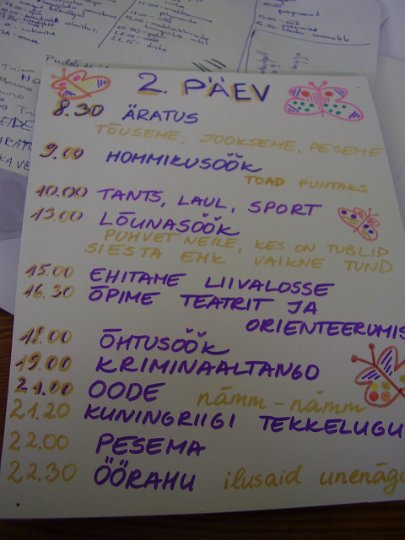 2. PÄEV
8.30 ÄRATUS
TÕUSEME, JOOKSEME, PESEME
9.00 HOMMIKUSÖÖK
TOAD PUHTAKS
10.00 TANTS, LAUL, SPORT
13.00 LÕUNASÖÖK
PUHVET NEILE, KES ON TUBLID
SIESTA EHK VAIKNE TUND
15.00 EHITAME LIIVALOSSE
16.30 ÕPIME TEATRIT JA
ORIENTEERUMIS
18.00 ÕHTUSÖÖK
19.00 KRIMINAALTANGO
21.00 OODE nämm-nämm
21.20 KUNINGRIIGI TEKKELUGU
22.00 PESEMA
22.30 ÖÖRAHU ilusaid unenägu